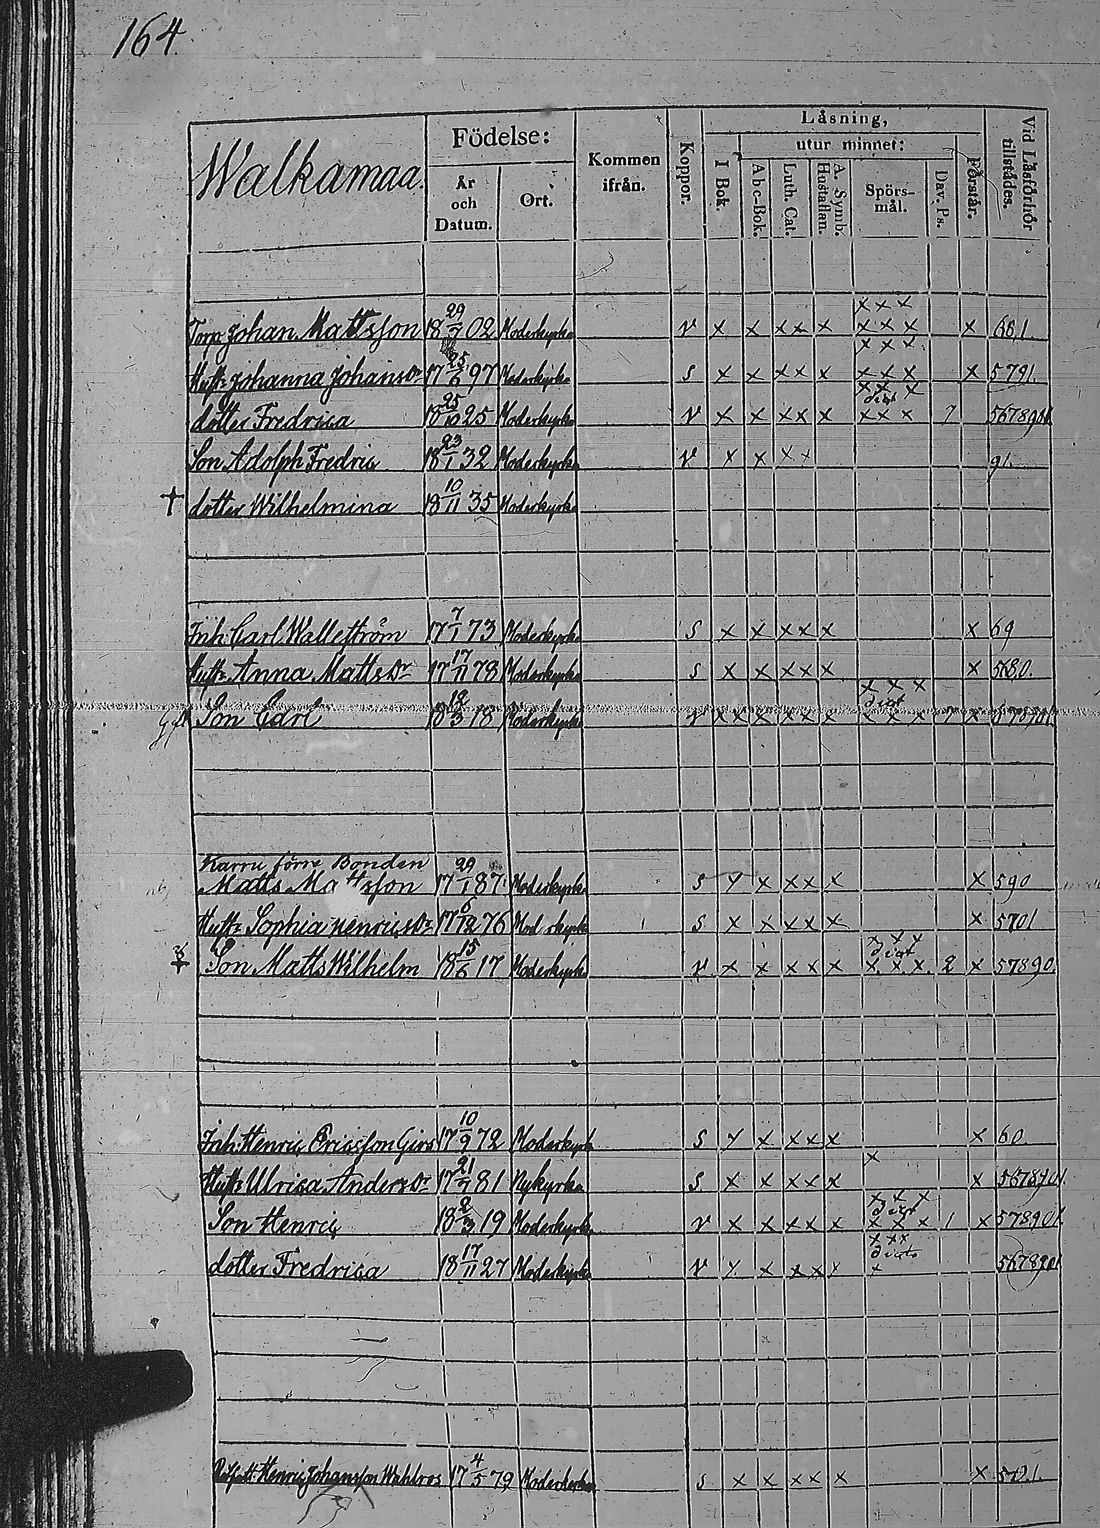 164
Walkamaa.
Födelse:
År och Datum.
Ort.
Kommen ifrån.
Koppor.
Låsning,
I Bok.
utur minnet:
Abc-Bok.
Luth. Cat.
A. Symb. Hustaflan.
Spörs-mål.
Dav. Ps.
Förstår.
Vid Låsförhör tillstådes.
x x x
Torp. Johan Mattsson 18 29/7 02 Moderkyrka v x x xx x xxx x 681
x x x
Hust: Johanna Johansdr 17 25/6 97 Moderkyrka s x x xx x xxx x 5791.
x x x dist
dotter Fredrica 18 25/10 25 Moderkyrka v x x xx x xxx 7
Son Adolph Fredric 18 23/1 32 Moderkyrka v x x xx 91.
† dotter Wilhelmina 18 10/11 35 Moderkyrka
Inh: Carl Wallström 17 7/1 73 Moderkyrka s x x xx xx x 69
Hust: Anna Mattsdr 17 17/11 78 Moderkyrka s x x xx xx x 5680.
x x x dist
Son Carl 18 /3 18 Moderkyrka v xx x xx x xxx 7 x
Karru förre Bonden
Matts Mattsson 17 29/1 87 Moderkyrka s x x xx x x 590
Hust: Sophia Henricsdr 17 6/12 76 Mod kyrka s x x xx xx x 5701
x x x dist
Son Matts Wilhelm 18 15/6 17 Moderkyrka v x x xx x xxx 2 x 57890.
Inh: Henric Ericsson Girs 17 10/9 72 Moderkyrk s x x xx x x 60.
x
Hust: Ulrica Andersdr 17 21/7 81 Nykyrka s x x xx xx x
x x x dist
Son Henric 18 2/3 19 Moderkyrka v x x xx x x xxx 1 x 578901
x x x dicto
dotter Fredrica 18 17/11 27 Moderkyrka v x x xxx x x
Henric Johansson Wahlroos 17 4/5 79 Moderkyrka s x x xx x x